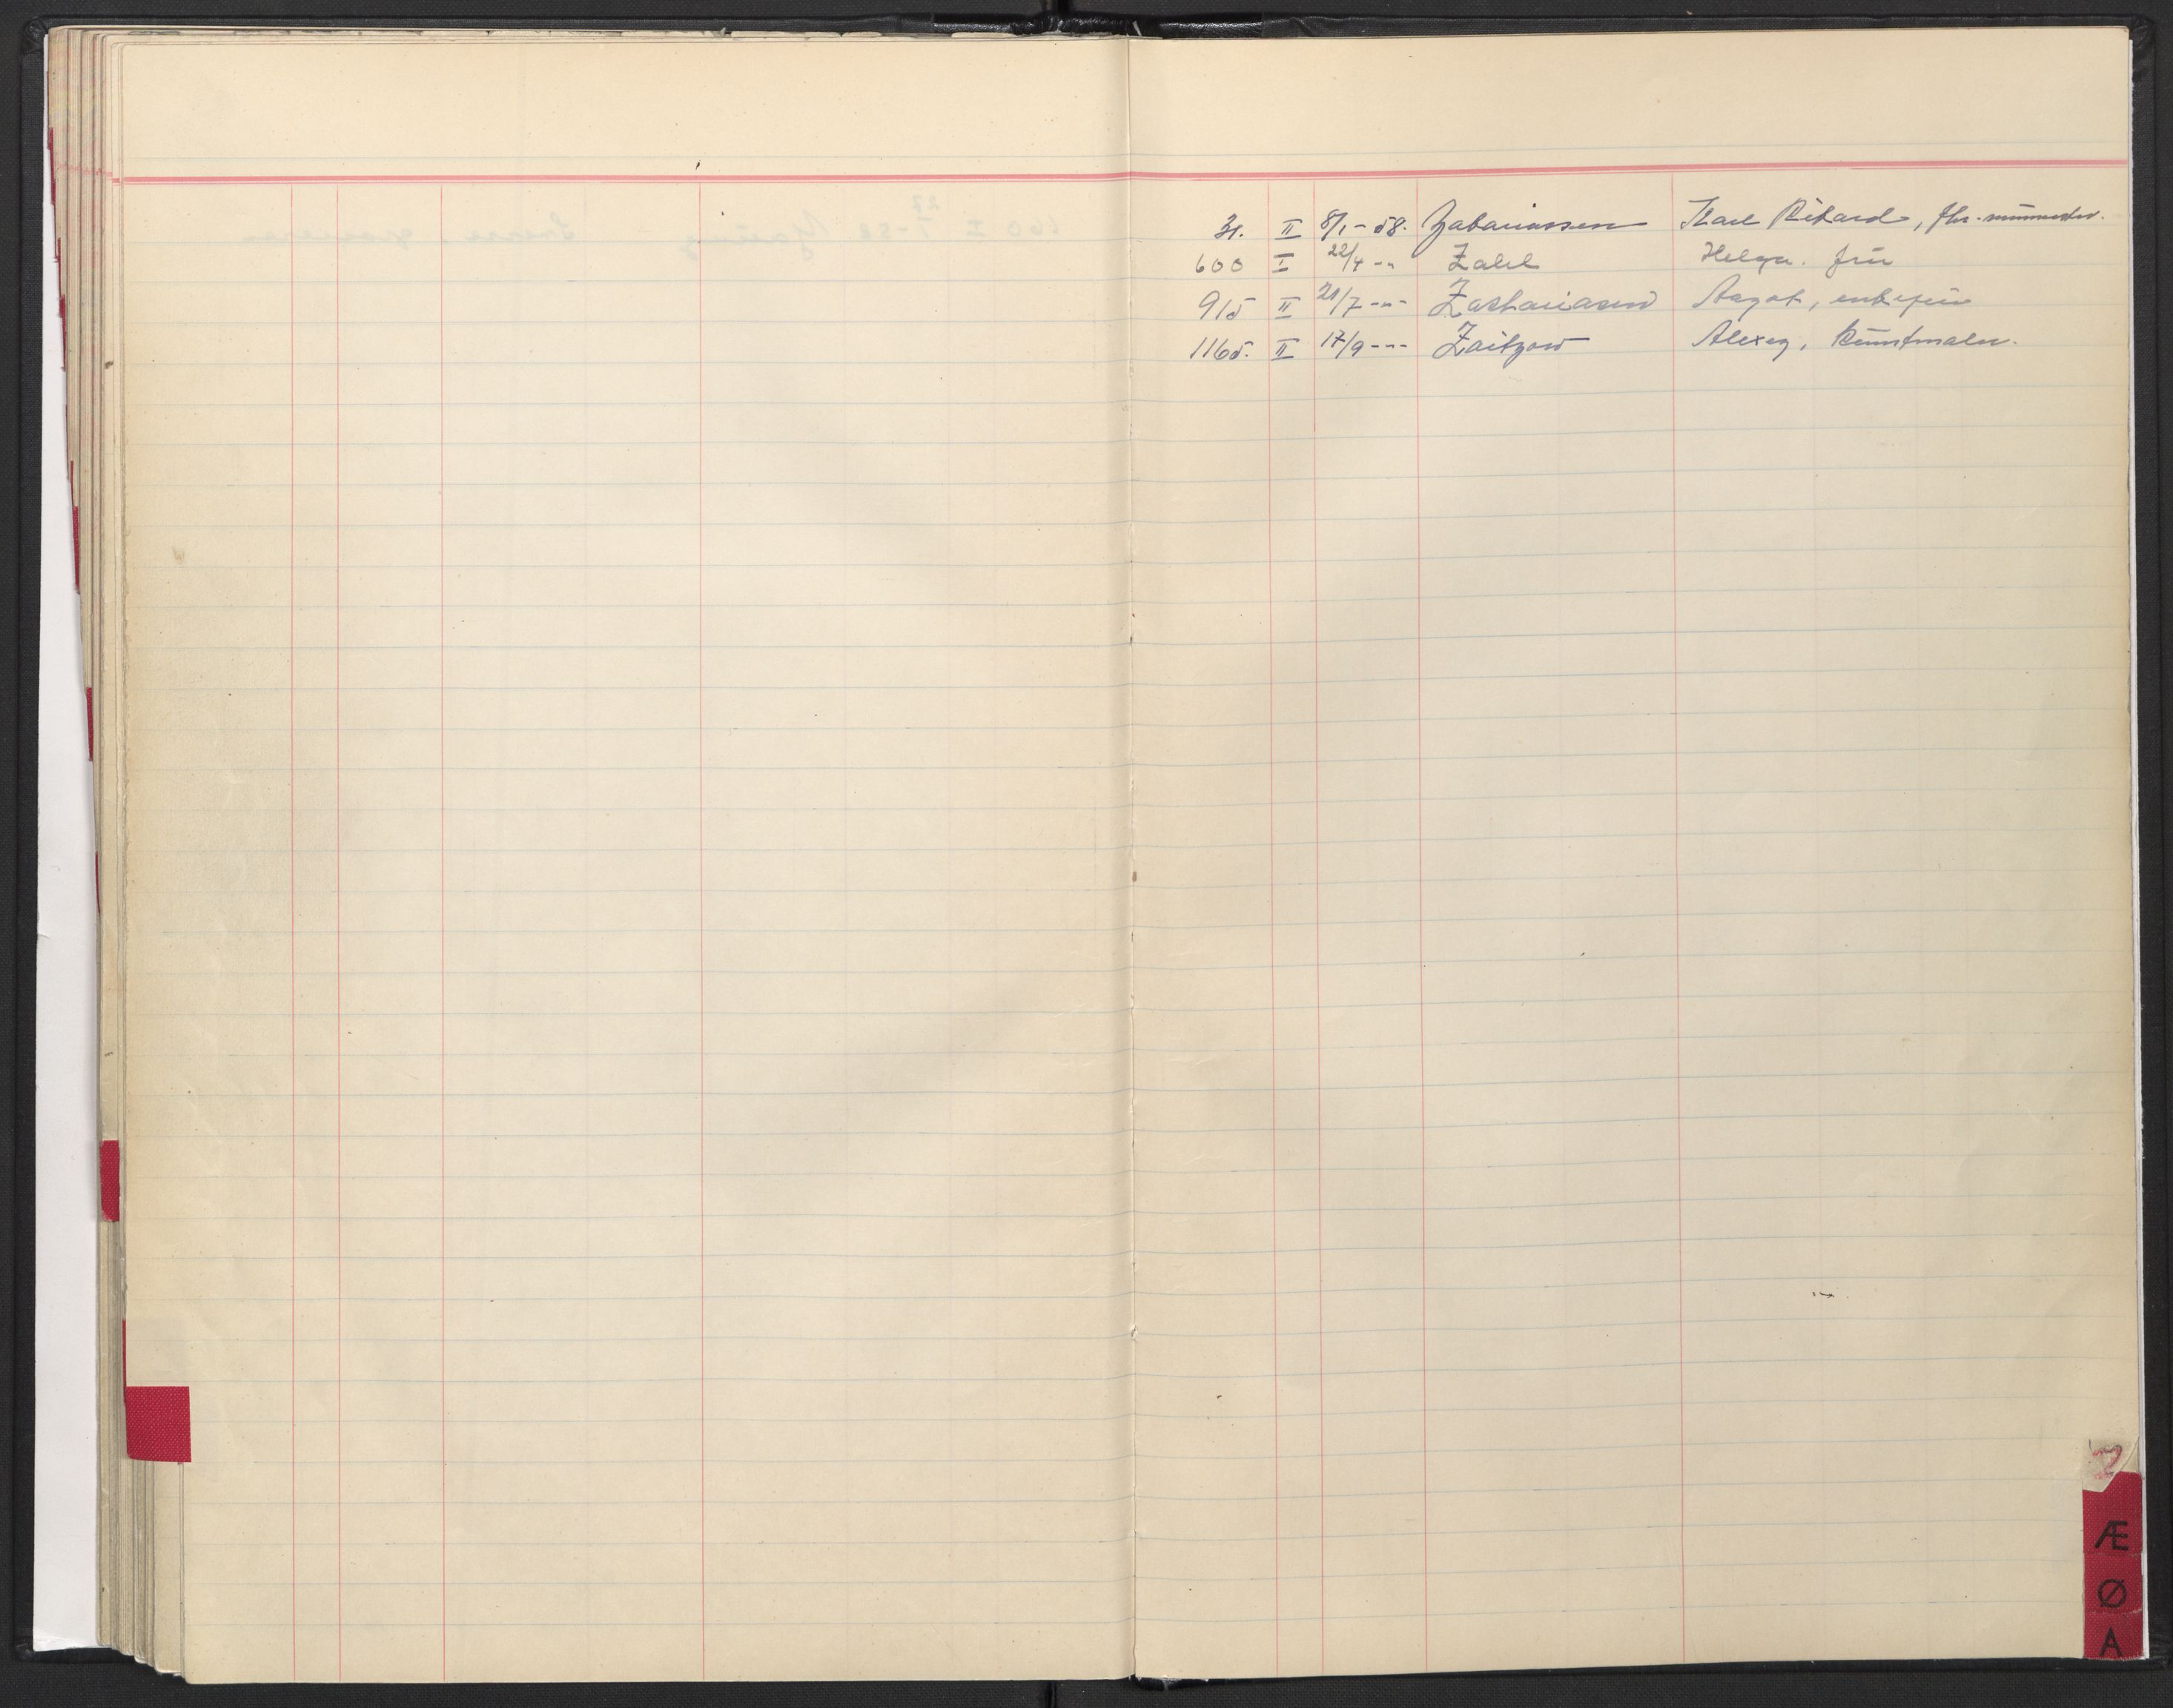 31. II 8/1-58. Zakariassen Karl Rikard, fhv. murmester.
600 I 22/4 -"- Zahl Helga. frue
915 II 21/7 -"- Zachariasen Aagot, enkefrue
1165. II 17/9 -"- Zaitzow Alexey, kunstmaler.
Z
Æ
Ø
A